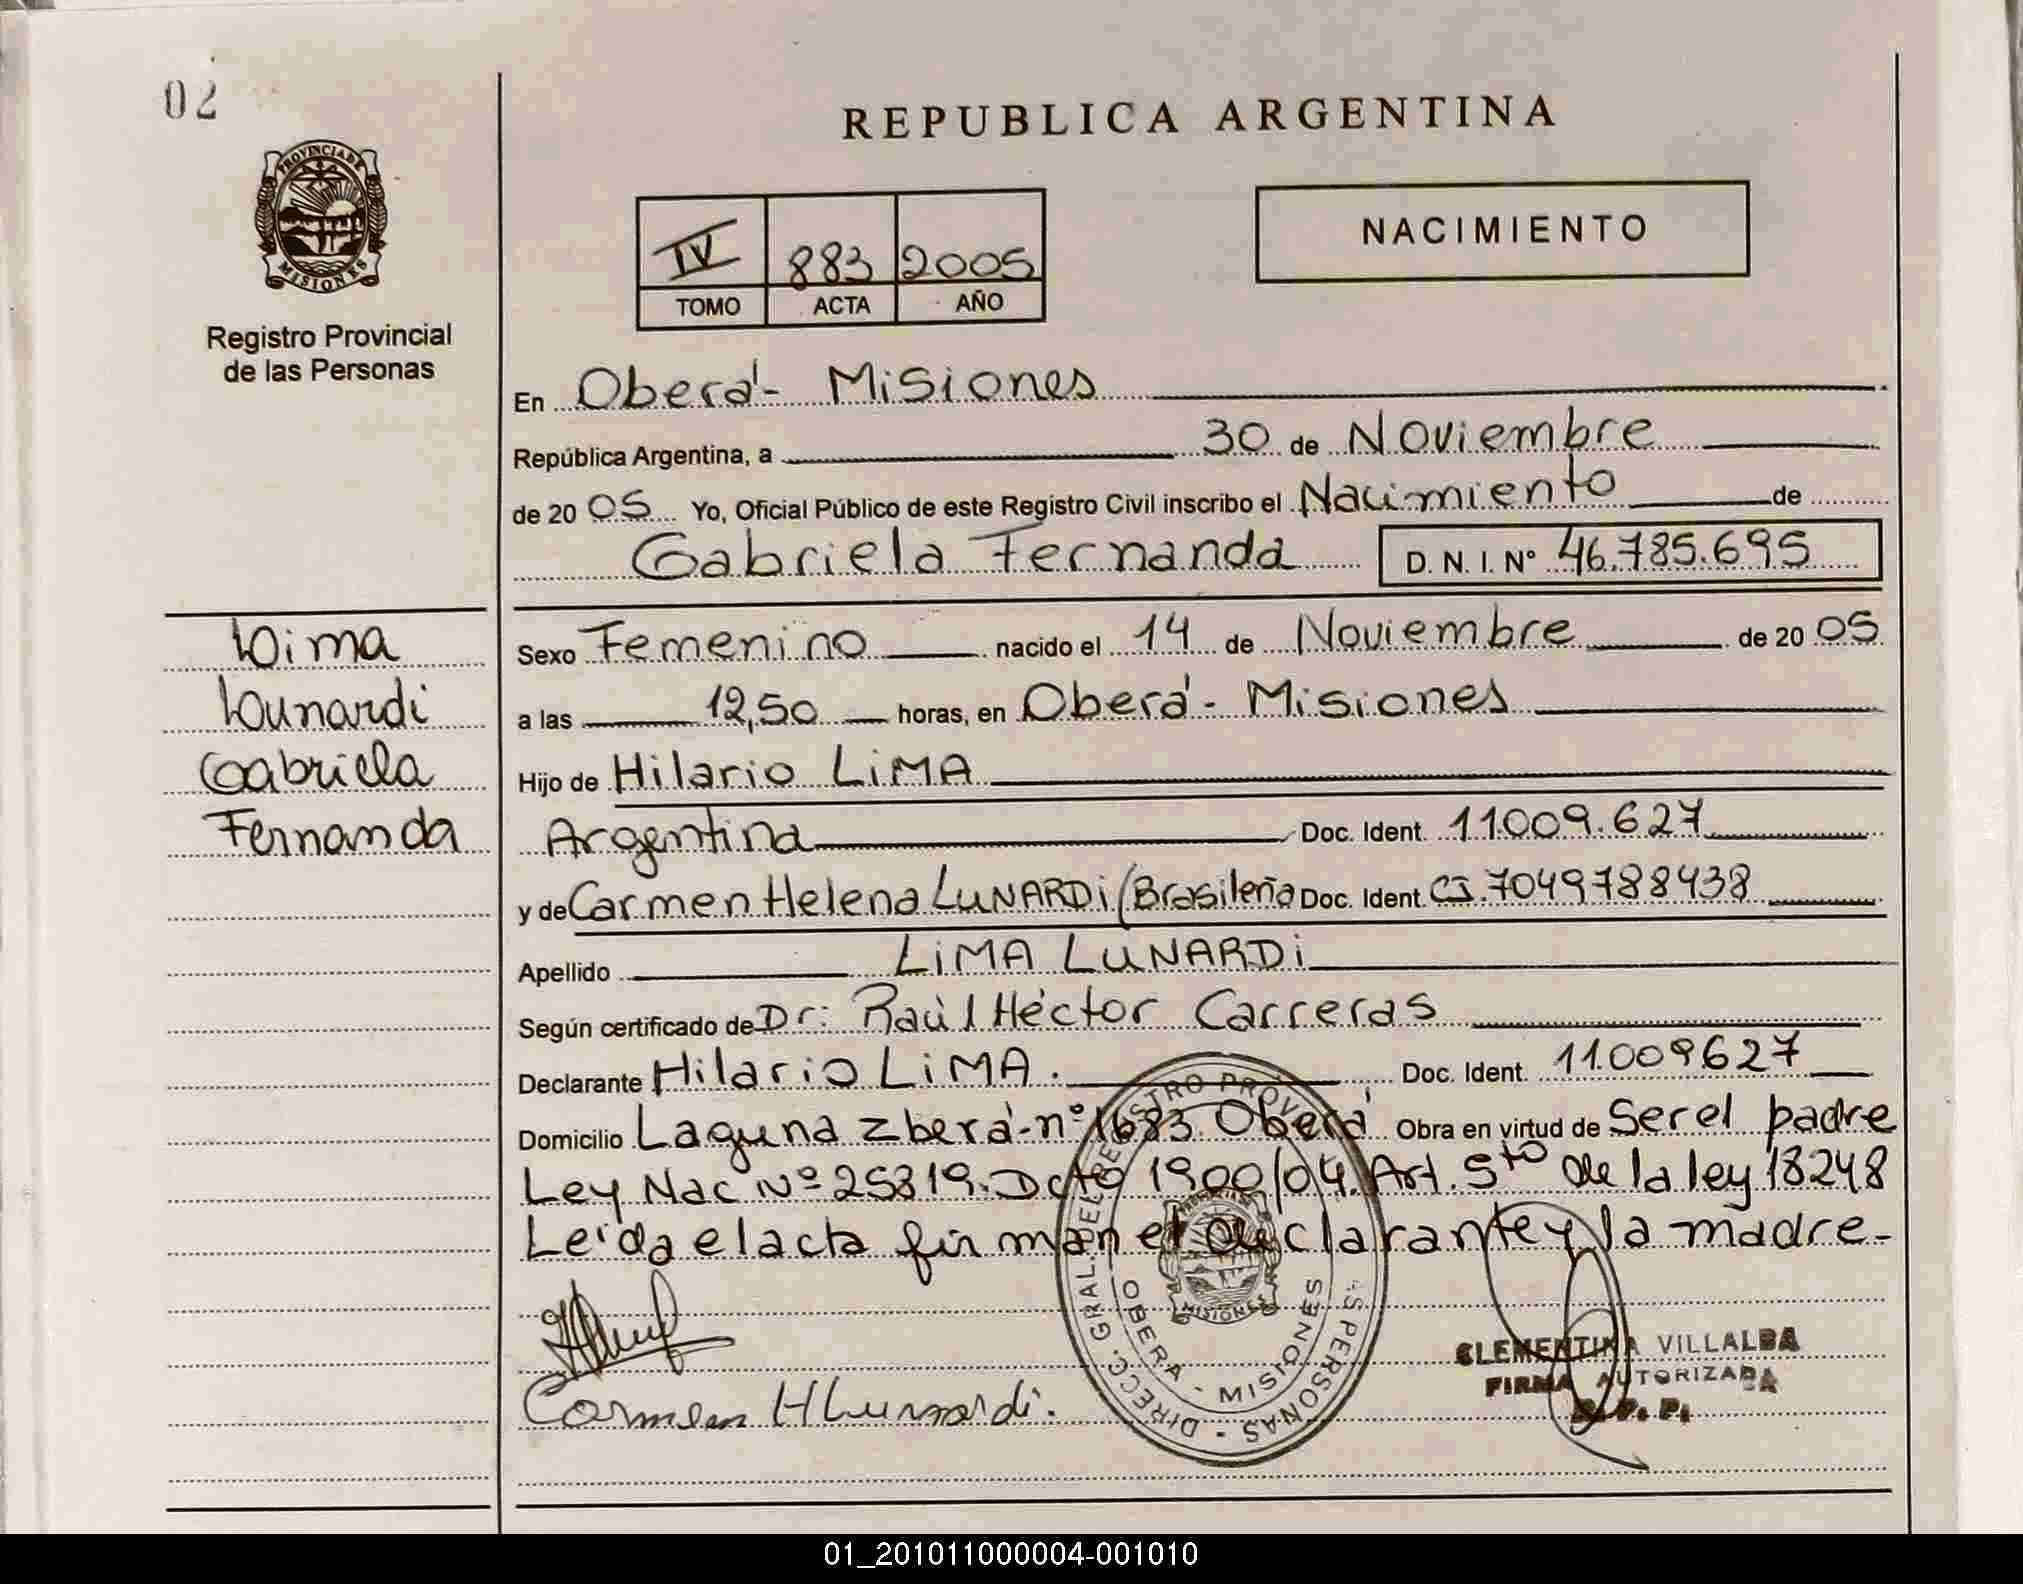 02
REPUBLICA ARGENTINA
PROVINCIA DE
MISIONES
Registro Provincial
de las Personas
IV 883 2005
TOMO ACTA AÑO
NACIMIENTO
En Oberá - Misiones
República Argentina, a 30 de Noviembre
de 20 05 Yo, Oficial Público de este Registro Civil inscribo el Nacimiento de
Gabriela Fernanda D. N. I. Nº 46.785.695
Lima
Lunardi
Gabriela
Fernanda
Sexo Femenino nacido el 14 de Noviembre de 20 05
a las 12,50 horas, en Oberá - Misiones
Hijo de Hilario LiMA
Argentina Doc. Ident. 11.009.627
y de Carmen Helena LUNARDi (Brasileña Doc. Ident. CI. 7049788438
Apellido LiMA LUNARDi
Según certificado de Dr: Raúl Héctor Carreras
Declarante Hilario LiMA. Doc. Ident. 11.009627
Domicilio Laguna Zberá - nº 1683. Oberá Obra en virtud de Ser el padre
Ley Nac Nº 25819. Dcto 1900/04. Art. 5to de la ley 18248
Leída el acta firman el declarante y la madre-
Carmen H Lunardi.
DIRECC. GRAL. DEL REGISTRO PROV. PERSONAS
OBERA - MISIONES
MISIONES
CLEMENTINA VILLALBA
FIRMA AUTORIZADA
R. P. P.
01_201011000004-001010